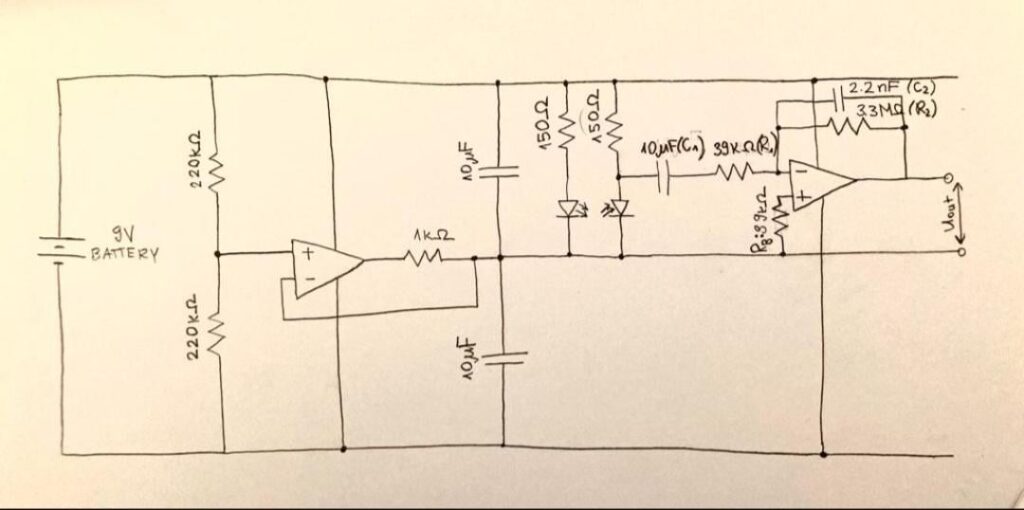 220kΩ
220kΩ
9V
BATTERY
+
-
1kΩ
10µF
10µF
150Ω
150Ω
10µF(C₁)
39kΩ(R₁)
2.2nF (C₂)
3.3MΩ (R₂)
-
+
39kΩ
Uout